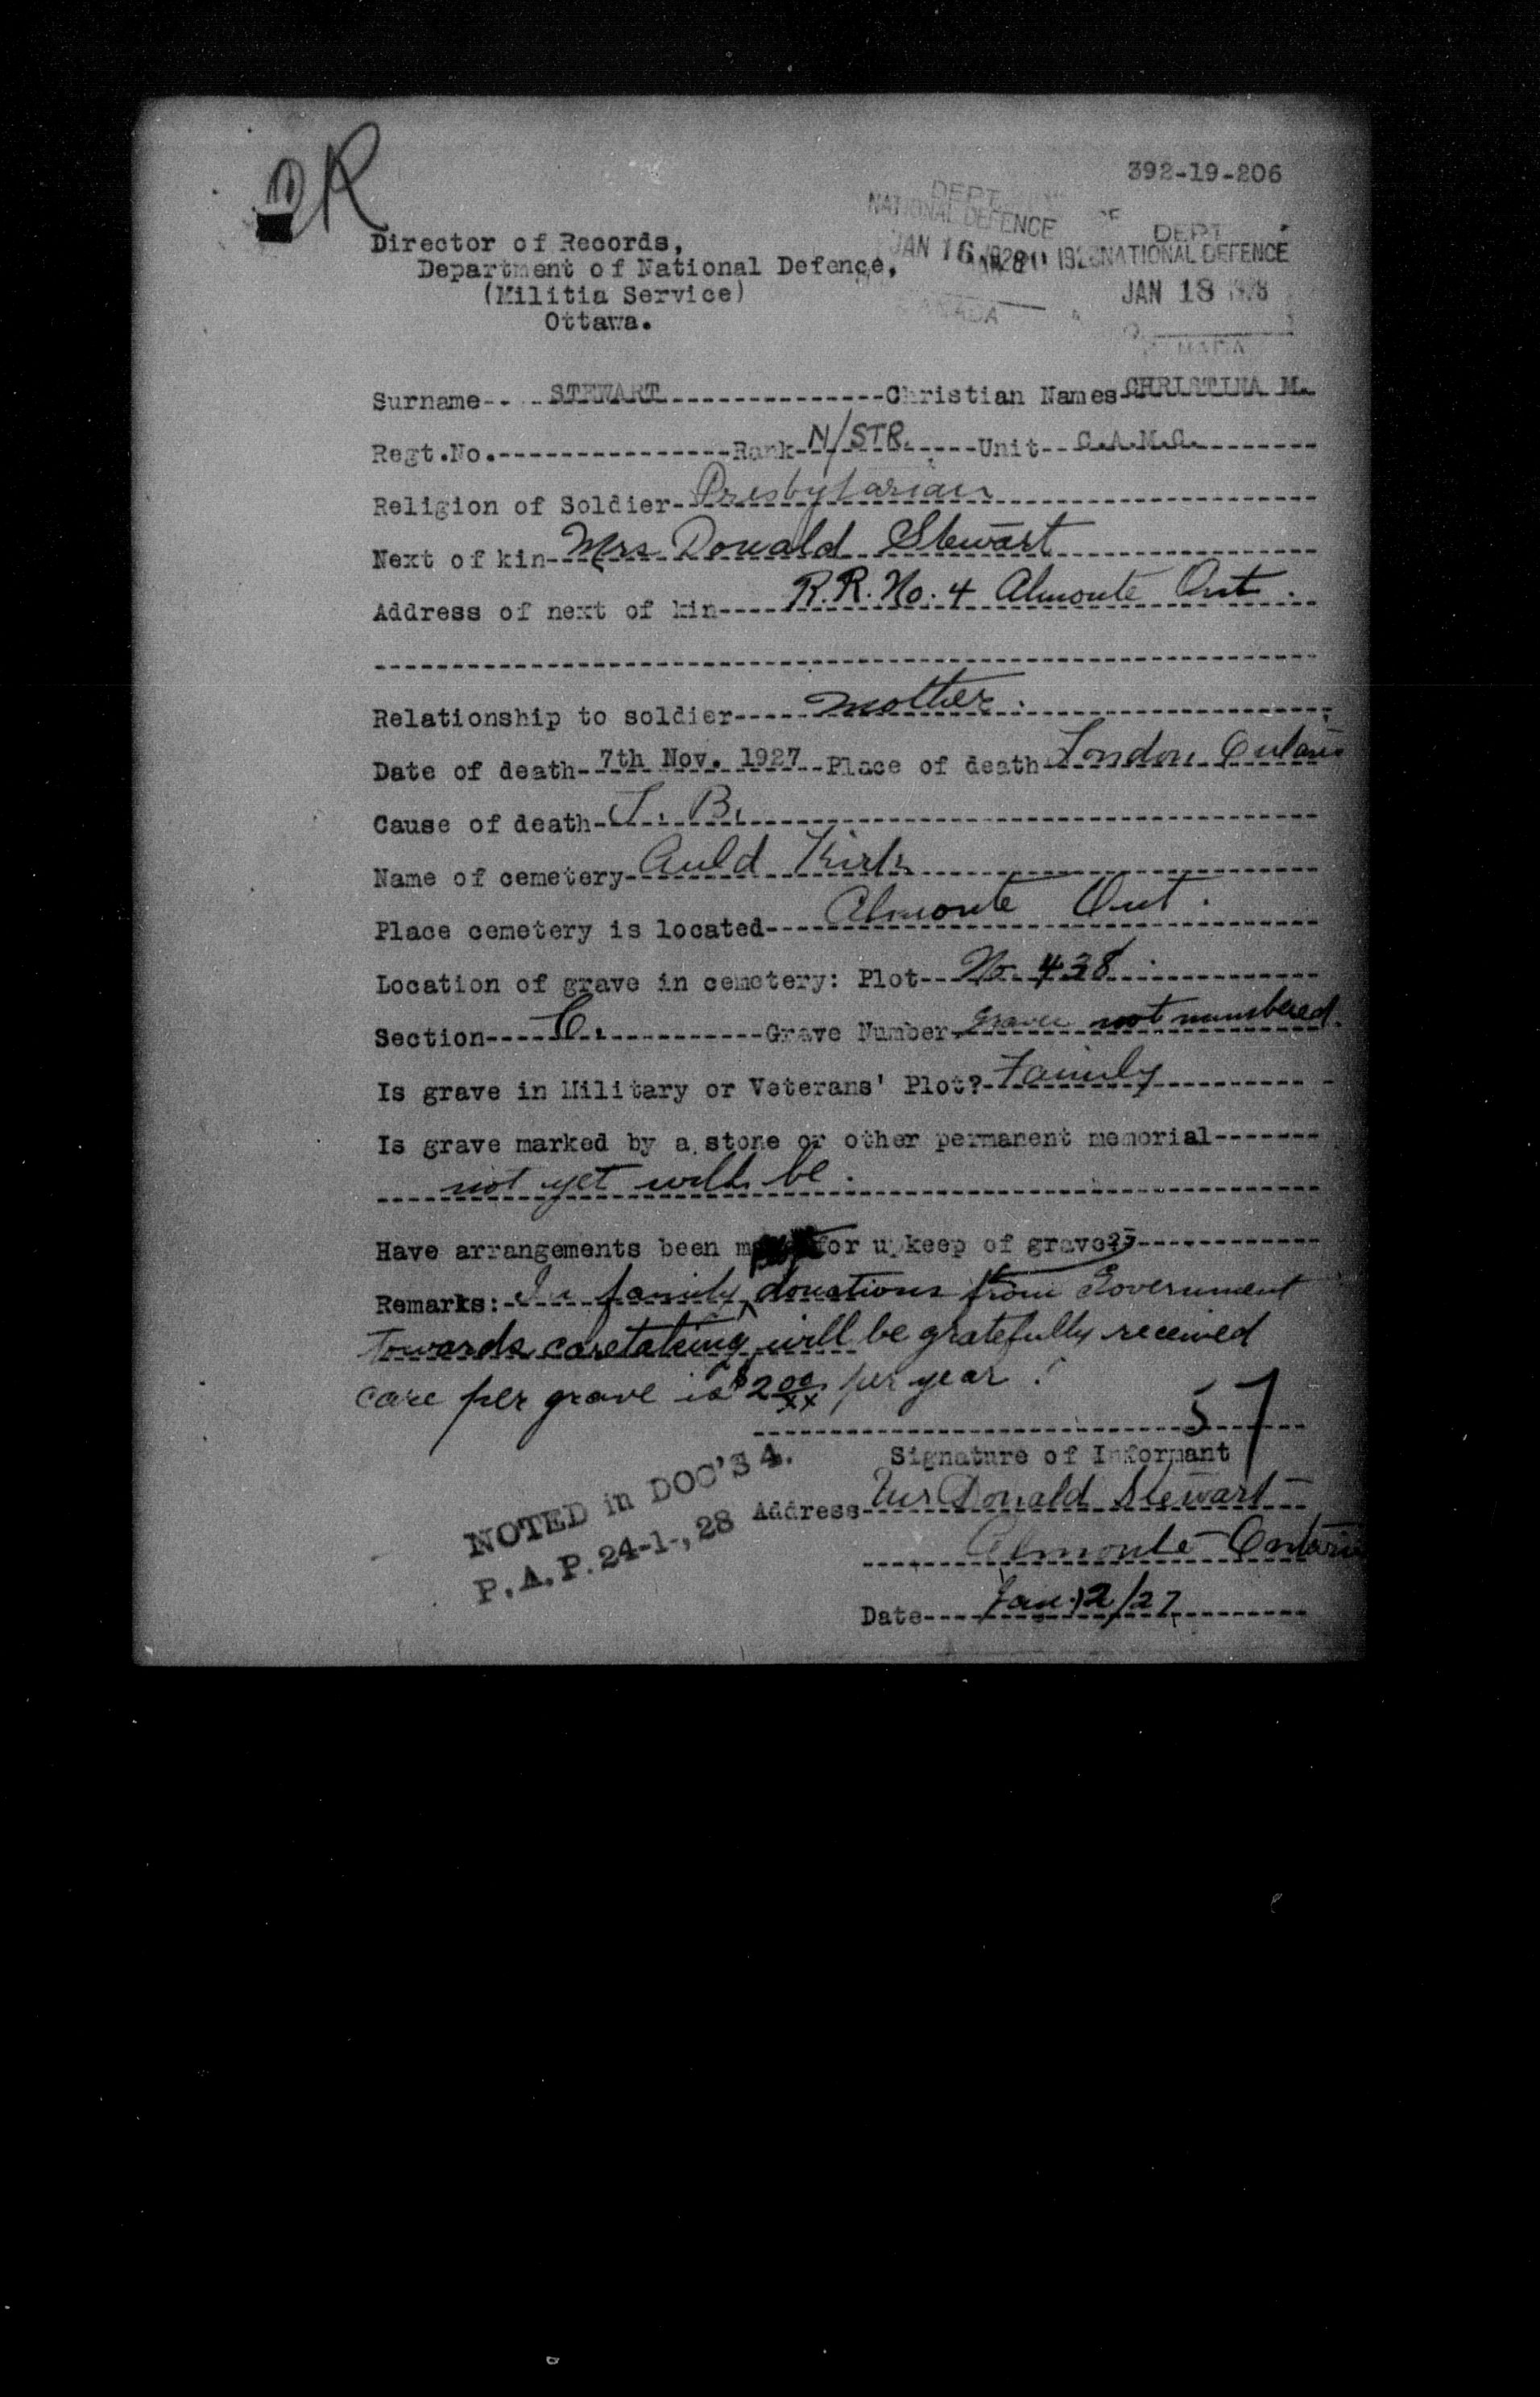 DR
392-19-206
DEPT.
NATIONAL DEFENCE
JAN 16 1928
CANADA
DEPT
NATIONAL DEFENCE
JAN 18 1928
Director of Records,
Department of National Defence,
(Militia Service)
Ottawa.
Surname STEWART Christian Names CHRISTINA M.
Regt.No. Rank N/STR. Unit C.A.M.C.
Religion of Soldier Presbytarian
Next of kin Mrs Donald Stewart
Address of next of kin R.R. No. 4 Almonte Ont.
Relationship to soldier mother.
Date of death 7th Nov. 1927 Place of death London Ontario
Cause of death T. B.
Name of cemetery Auld Kirk
Place cemetery is located Almonte Ont.
Location of grave in cemetery: Plot No 438
Section C. Grave Number graves not numbered.
Is grave in Military or Veterans' Plot? Family
Is grave marked by a stone or other permanent memorial
not yet will be.
Have arrangements been made for upkeep of grave?
Remarks: In family donations from Government
towards caretaking will be gratefully received
care per grave is $2 00/xx per year.
57
Signature of Informant
NOTED in DOC'S 4.
P.A.P. 24-1-,28
Address Mrs Donald Stewart
Almonte Ontario
Date Jan. 12/27